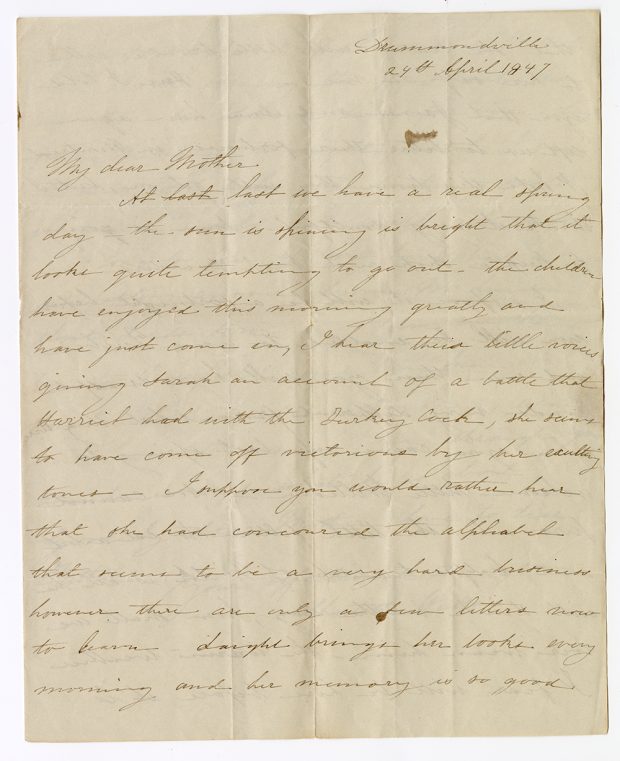 Drummondville
29th April 1847
My dear Mother
At last last we have a real spring
day - the sun is shining is bright that it
looks quite tempting to go out - the children
have enjoyed this morning greatly and
have just come in, I hear their little voices
giving Sarah an account of a battle that
Harriet had with the Turkey Cock, she seems
to have come off victorious by her exulting
tones - I suppose you would rather hear
that she had concoured the alphabet
that seems to be a very hard business
however there are only a few letters now
to learn brings her books every
morning and her memory is so good